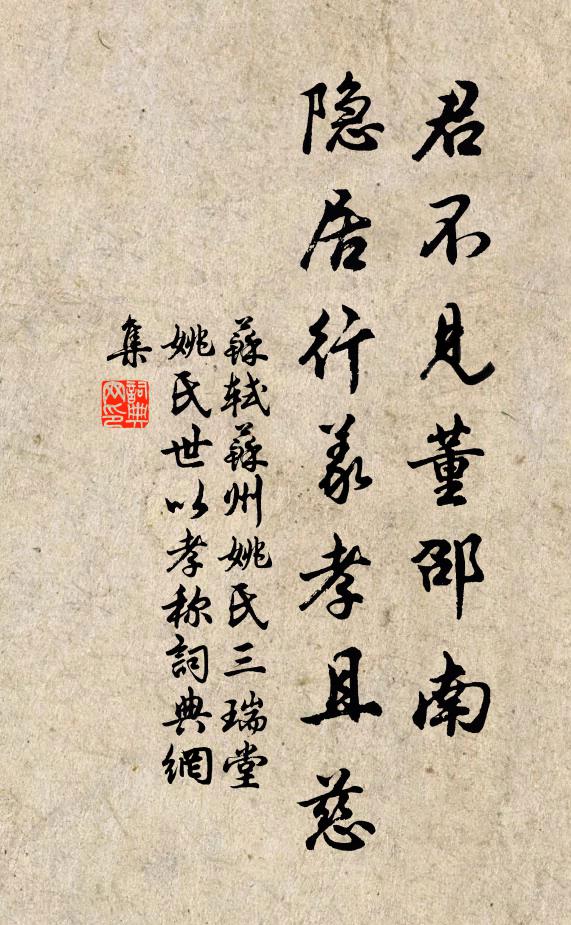 君不见董邵南
隐居行义孝且慈
蘇轼蘇州姚氏三瑞堂
姚氏世以孝称詞典網
集
詞典
网印